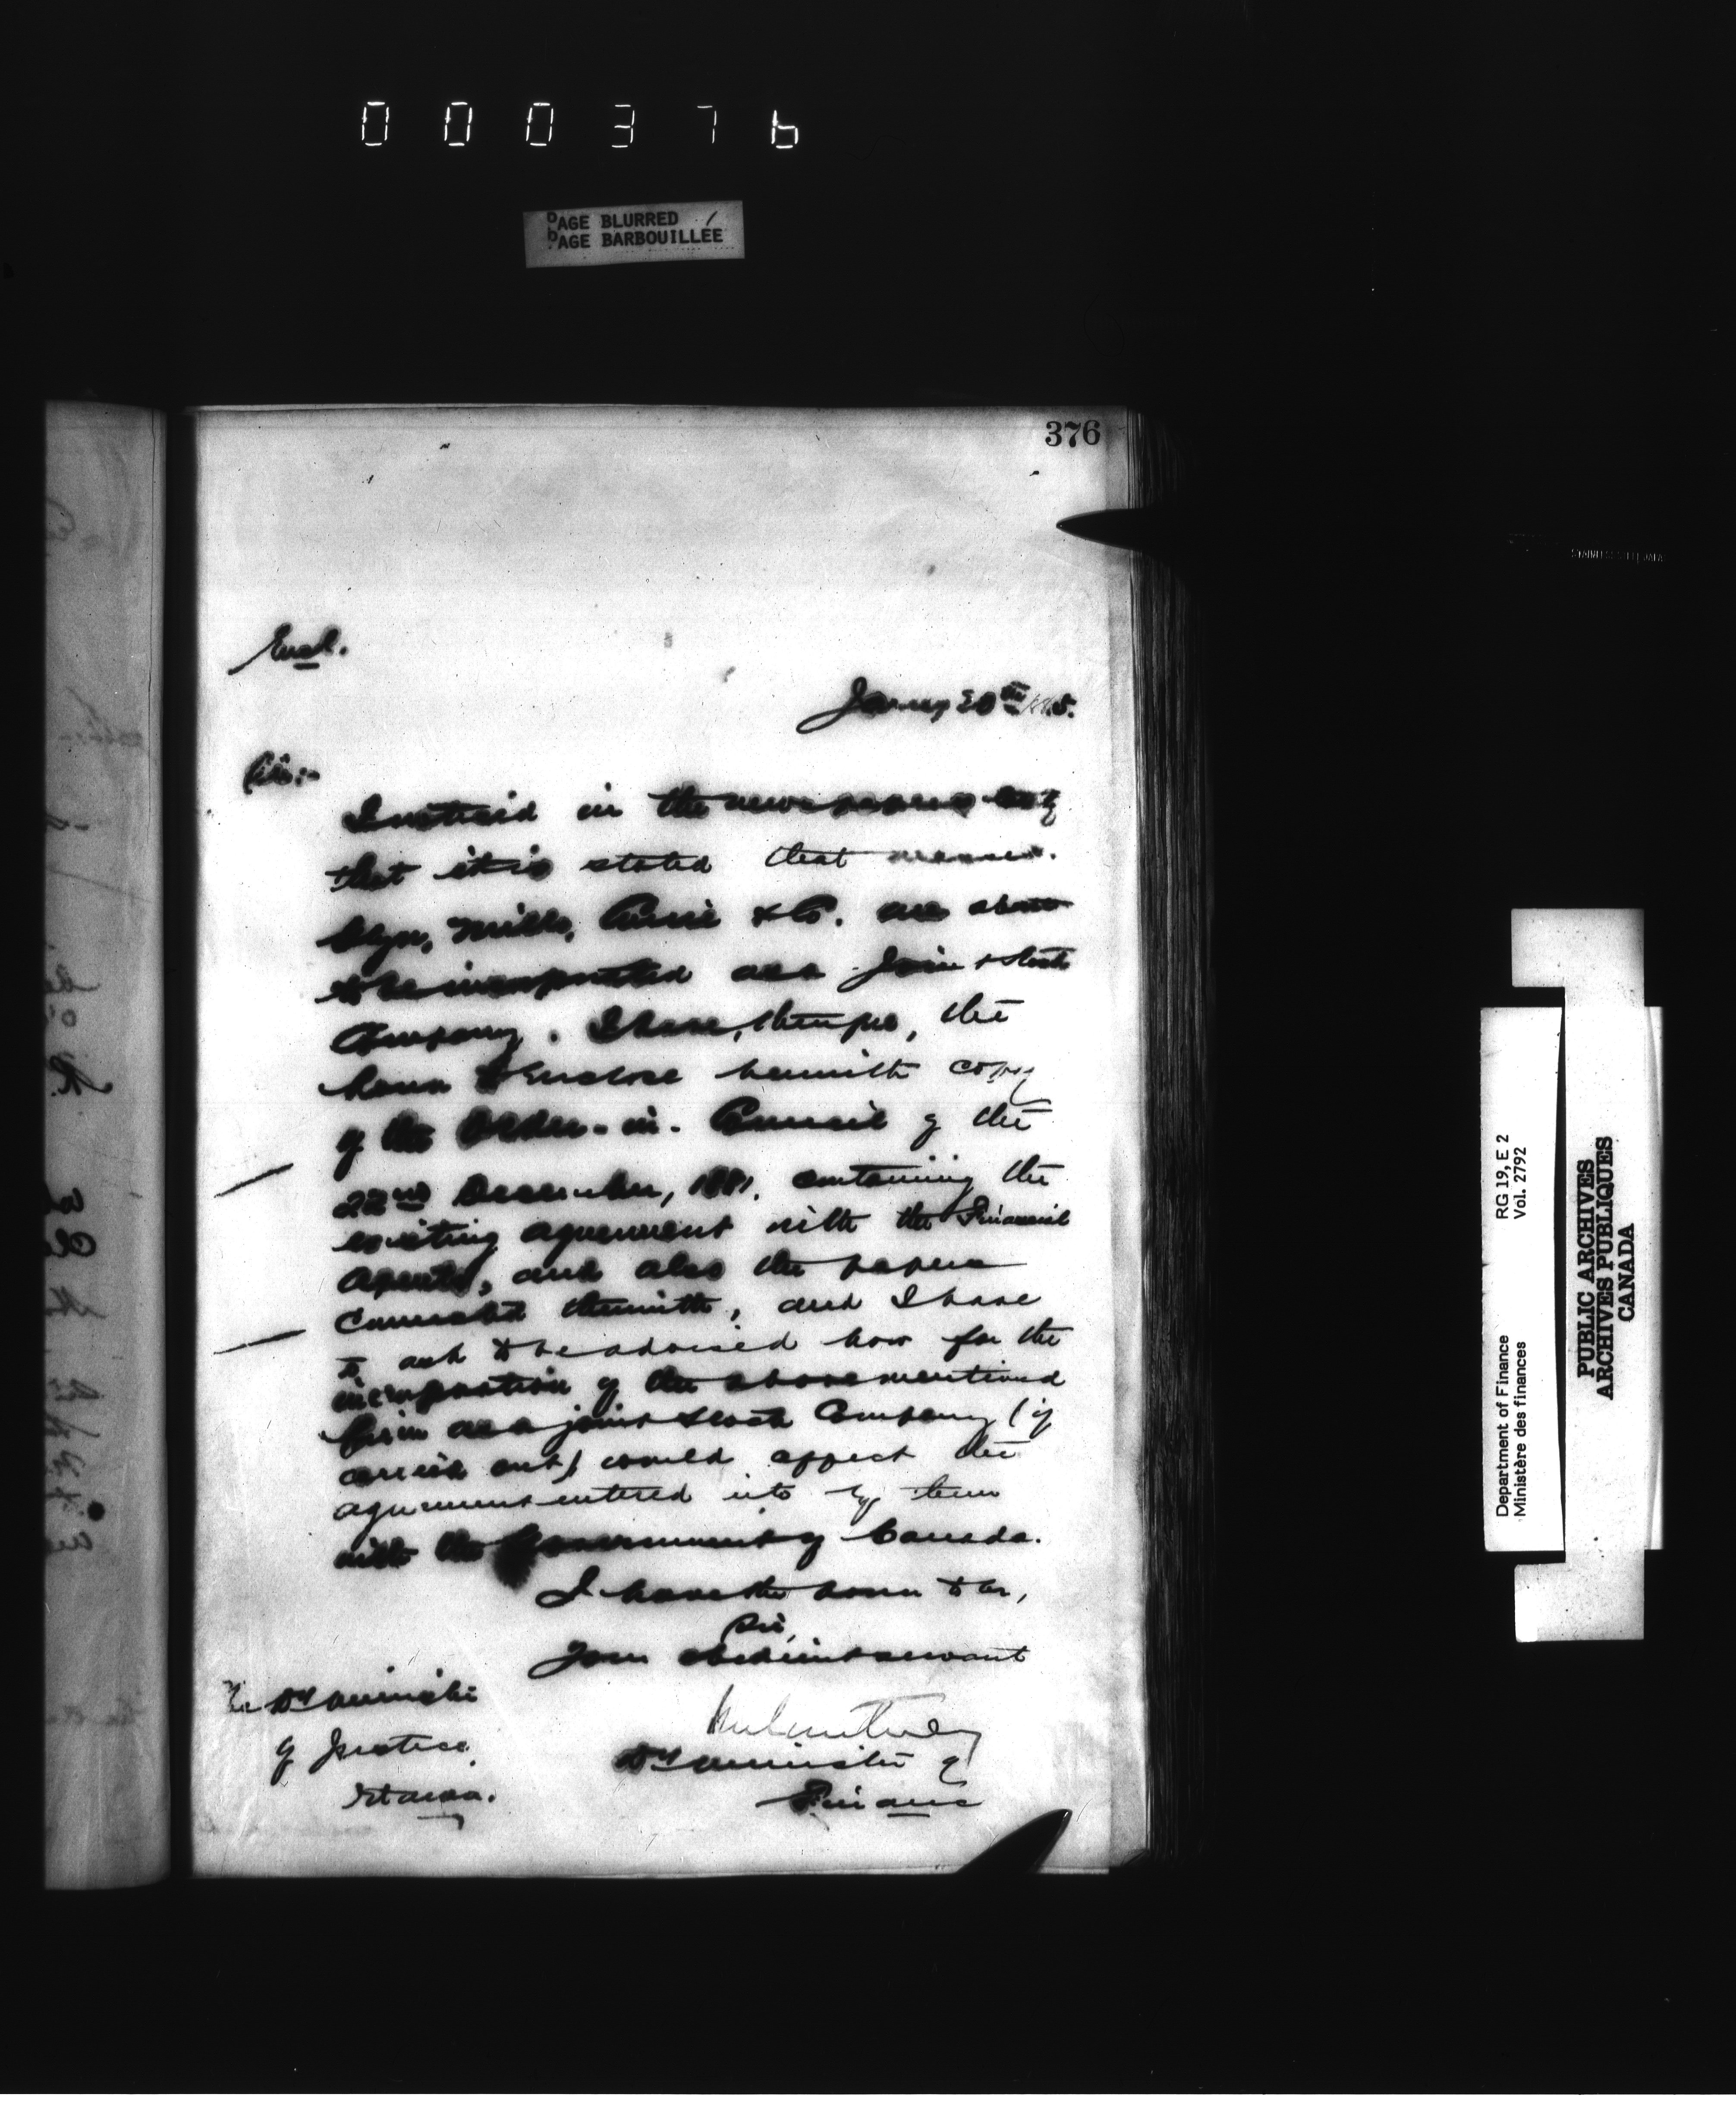 000376
PAGE BLURRED
PAGE BARBOUILLÉE
376
Encl.
Jany 20th 1885.
Sir:-
I noticed in the newspapers
that it is stated that Messrs.
Glyn, Mills, Currie & Co. are about
to be incorporated as a Joint Stock
Company. I have, therefore, the
honor to enclose herewith copy
of the Order-in-Council of the
22nd December, 1881, containing the
existing agreement with the Financial
Agents, and also the papers
connected therewith, and I have
to ask to be advised how far the
incorporation of the above mentioned
firm as a joint stock Company (if
carried out) would affect the
agreement entered into by them
with the Government of Canada.
I have the honor to be,
Sir,
Your obedient servant
Dy Minister of
Finance
The Dy Minister
of Justice,
Ottawa.
Department of Finance RG 19, E 2
Ministère des finances Vol. 2792
PUBLIC ARCHIVES
ARCHIVES PUBLIQUES
CANADA